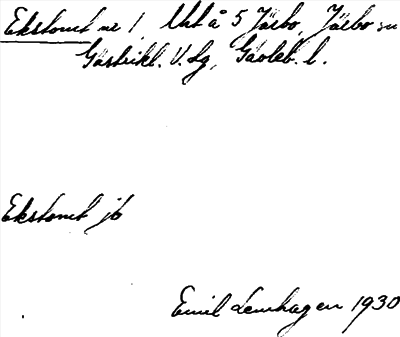 Ekstomt nr 1, Urt å 5 Järbo, Järbo sn
Gästrikl. V. dg, Gävleb. l.
Ekstomt jb
Emil Lenhagen 1930